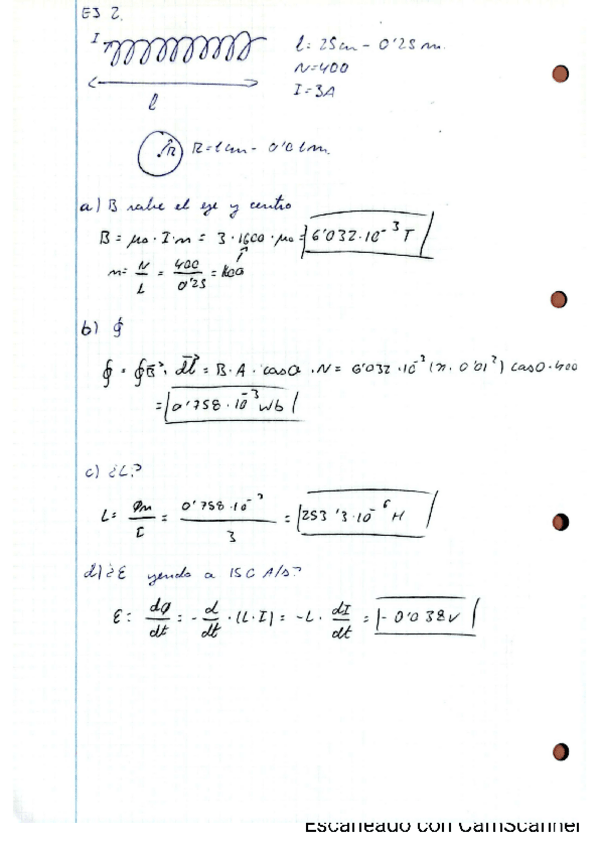 EJ 2.
I
l: 25cm - 0'25 m.
N=400
I=3A
l
R
R=1cm - 0'01m.
a) B sobre el eje y centro
B = μ0 · I · n = 3 · 1600 · μ0 = 6'032·10⁻³ T
n = N/L = 400/0'25 = 1600
b) ϕ
ϕ = ∮B · dl = B · A · cosα · N = 6'032 · 10⁻³ (π · 0'01²) cos0 · 400
= 0'758 · 10⁻³ Wb
c) ¿L?
L = Φm/I = 0'758·10⁻³/3 = 253'3·10⁻⁶ H
d) ¿ε yendo a 150 A/s?
ε = dϕ/dt = -d/dt · (L·I) = -L · dI/dt = -0'038V
Escaneado con CamScanner